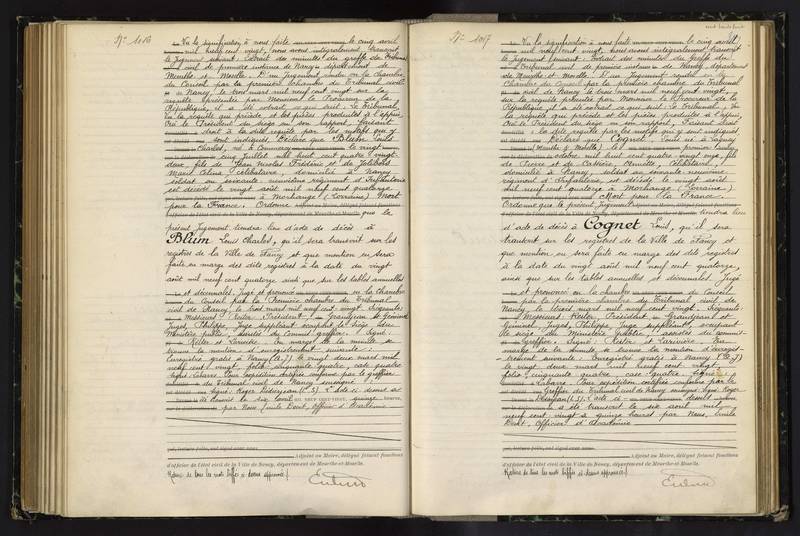 N° 1016
Vu la signification à nous faite le cinq avril
mil neuf cent vingt, nous avons intégralement transcrit
le Jugement suivant: Extrait des minutes du greffe du Tribunal
civil de première instance de Nancy, département de
Meurthe et Moselle. D'un Jugement rendu en la chambre
du Conseil par la première chambre du Tribunal civil
de Nancy, le trois mars mil neuf cent vingt sur la
requête présentée par Monsieur le Procureur de la
République, il a été extrait ce qui suit: Le Tribunal,
Vu la requête qui précède et les pièces produites à l'appui,
Ouï le Président du siège en son rapport, Faisant
droit à la dite requête par les motifs qui y
sont indiqués, Déclare que Blum Louis
Charles, né à Commercy le vingt
cinq Juillet mil huit cent quatre vingt
deux, fils de Jean Nicolas Frédéric et de
Marie Célina, célibataire, domicilié à Nancy
soldat au soixante neuvième régiment d'Infanterie
est décédé le vingt août mil neuf cent quatorze
à Morhange (Lorraine) Mort
pour la France. Ordonne que le
présent Jugement tiendra lieu d'acte de décès à
Blum Louis Charles, qu'il sera transcrit sur les
registres de la Ville de Nancy et que mention en sera
faite en marge des dits registres à la date du vingt
août mil neuf cent quatorze ainsi que sur les tables annuelles
et décennales. Jugé et prononcé en la Chambre
du Conseil par la Première chambre du Tribunal
civil de Nancy, le trois mars mil neuf cent vingt. Présents:
Messieurs Keller, Président, Grandjean et Géminel
Juges, Philippe, Juge suppléant occupant le siège du
Ministère public, assistés du Commis greffier. Signé:
Keller et Larivière. En marge de la minute se
trouve la mention d'enregistrement suivante:
Enregistré gratis à Nancy (A.J) le vingt deux mars mil
neuf cent vingt, folio cinquante quatre, case quatre
signé: Labarre. Pour expédition certifiée conforme par le greffier
du Tribunal civil de Nancy soussigné
signé: Roger Désenjean (L.S). L'acte ci dessus a
été transcrit le six avril mil neuf cent vingt, quinze heures,
par Nous Emile Dent, officier d'état civil
Adjoint au Maire, délégué faisant fonctions
d'officier de l'état civil de la Ville de Nancy, département de Meurthe-et-Moselle.
Rature de tous les mots biffés ci-dessus approuvée.
N° 1017
Vu la signification à nous faite le cinq avril
mil neuf cent vingt, nous avons intégralement transcrit
le Jugement suivant: Extrait des minutes du greffe du
Tribunal civil de première instance de Nancy, département
de Meurthe et Moselle. D'un Jugement rendu en la
Chambre du Conseil par la première chambre du Tribunal
civil de Nancy, le trois mars mil neuf cent vingt,
sur la requête présentée par Monsieur le Procureur de la
République, il a été extrait ce qui suit: Le Tribunal, Vu
la requête qui précède et les pièces produites à l'appui,
Ouï le Président du siège en son rapport, Faisant droit
à la dite requête par les motifs qui y sont indiqués
Déclare que Cognet, Louis né à Nancy
(Meurthe et Moselle) le premier
octobre mil huit cent quatre vingt onze, fils
de Pierre et de Célibataire
domicilié à Nancy, soldat au soixante neuvième
régiment d'Infanterie, est décédé le vingt août
mil neuf cent quatorze à Morhange (Lorraine)
Mort pour la France.
Ordonne que le présent Jugement
tiendra lieu
d'acte de décès à Cognet Louis, qu'il sera
transcrit sur les registres de la Ville de Nancy et
que mention en sera faite en marge des dits registres
à la date du vingt août mil neuf cent quatorze,
ainsi que sur les tables annuelles et décennales. Jugé
et prononcé en la chambre du Conseil
par la première chambre du Tribunal civil de
Nancy, le trois mars mil neuf cent vingt. Présents:
Messieurs Keller, Président, Grandjean et
Géminel, Juges, Philippe, Juge suppléant, occupant
le siège du Ministère public, assistés du commis-
Greffier. Signé: Keller et Larivière. En
marge de la minute se trouve la mention d'enregis-
trement suivante: Enregistré gratis à Nancy (A.J)
le vingt deux mars mil neuf cent vingt
folio cinquante quatre, case quatre signé
Labarre. Pour expédition certifiée conforme par le
Greffier du Tribunal civil de Nancy soussigné signé: Roger
Désenjean (L.S). L'acte ci- dessus
a été transcrit le six avril mil
neuf cent vingt à quinze heures par Nous, Emile
Dent, Officier d'état civil
Adjoint au Maire, délégué faisant fonctions
d'officier de l'état civil de la Ville de Nancy, département de Meurthe-et-Moselle.
Rature de tous les mots biffés ci-dessus approuvée.